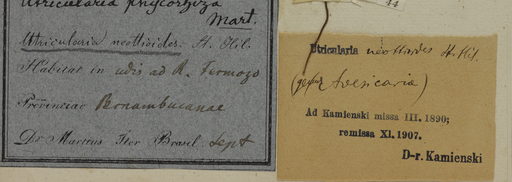 Utricularia phycorhyza
Mart.
Utricularia neottioides. St. Hil.
Habitat in udis ad R. Formozo
Provinciae Pernambucanae
Dr Martius Iter Brasil. Sept
Utricularia neottioides St. Hil.
Ad Kamienski missa III. 1890;
remissa XI. 1907.
D-r. Kamienski